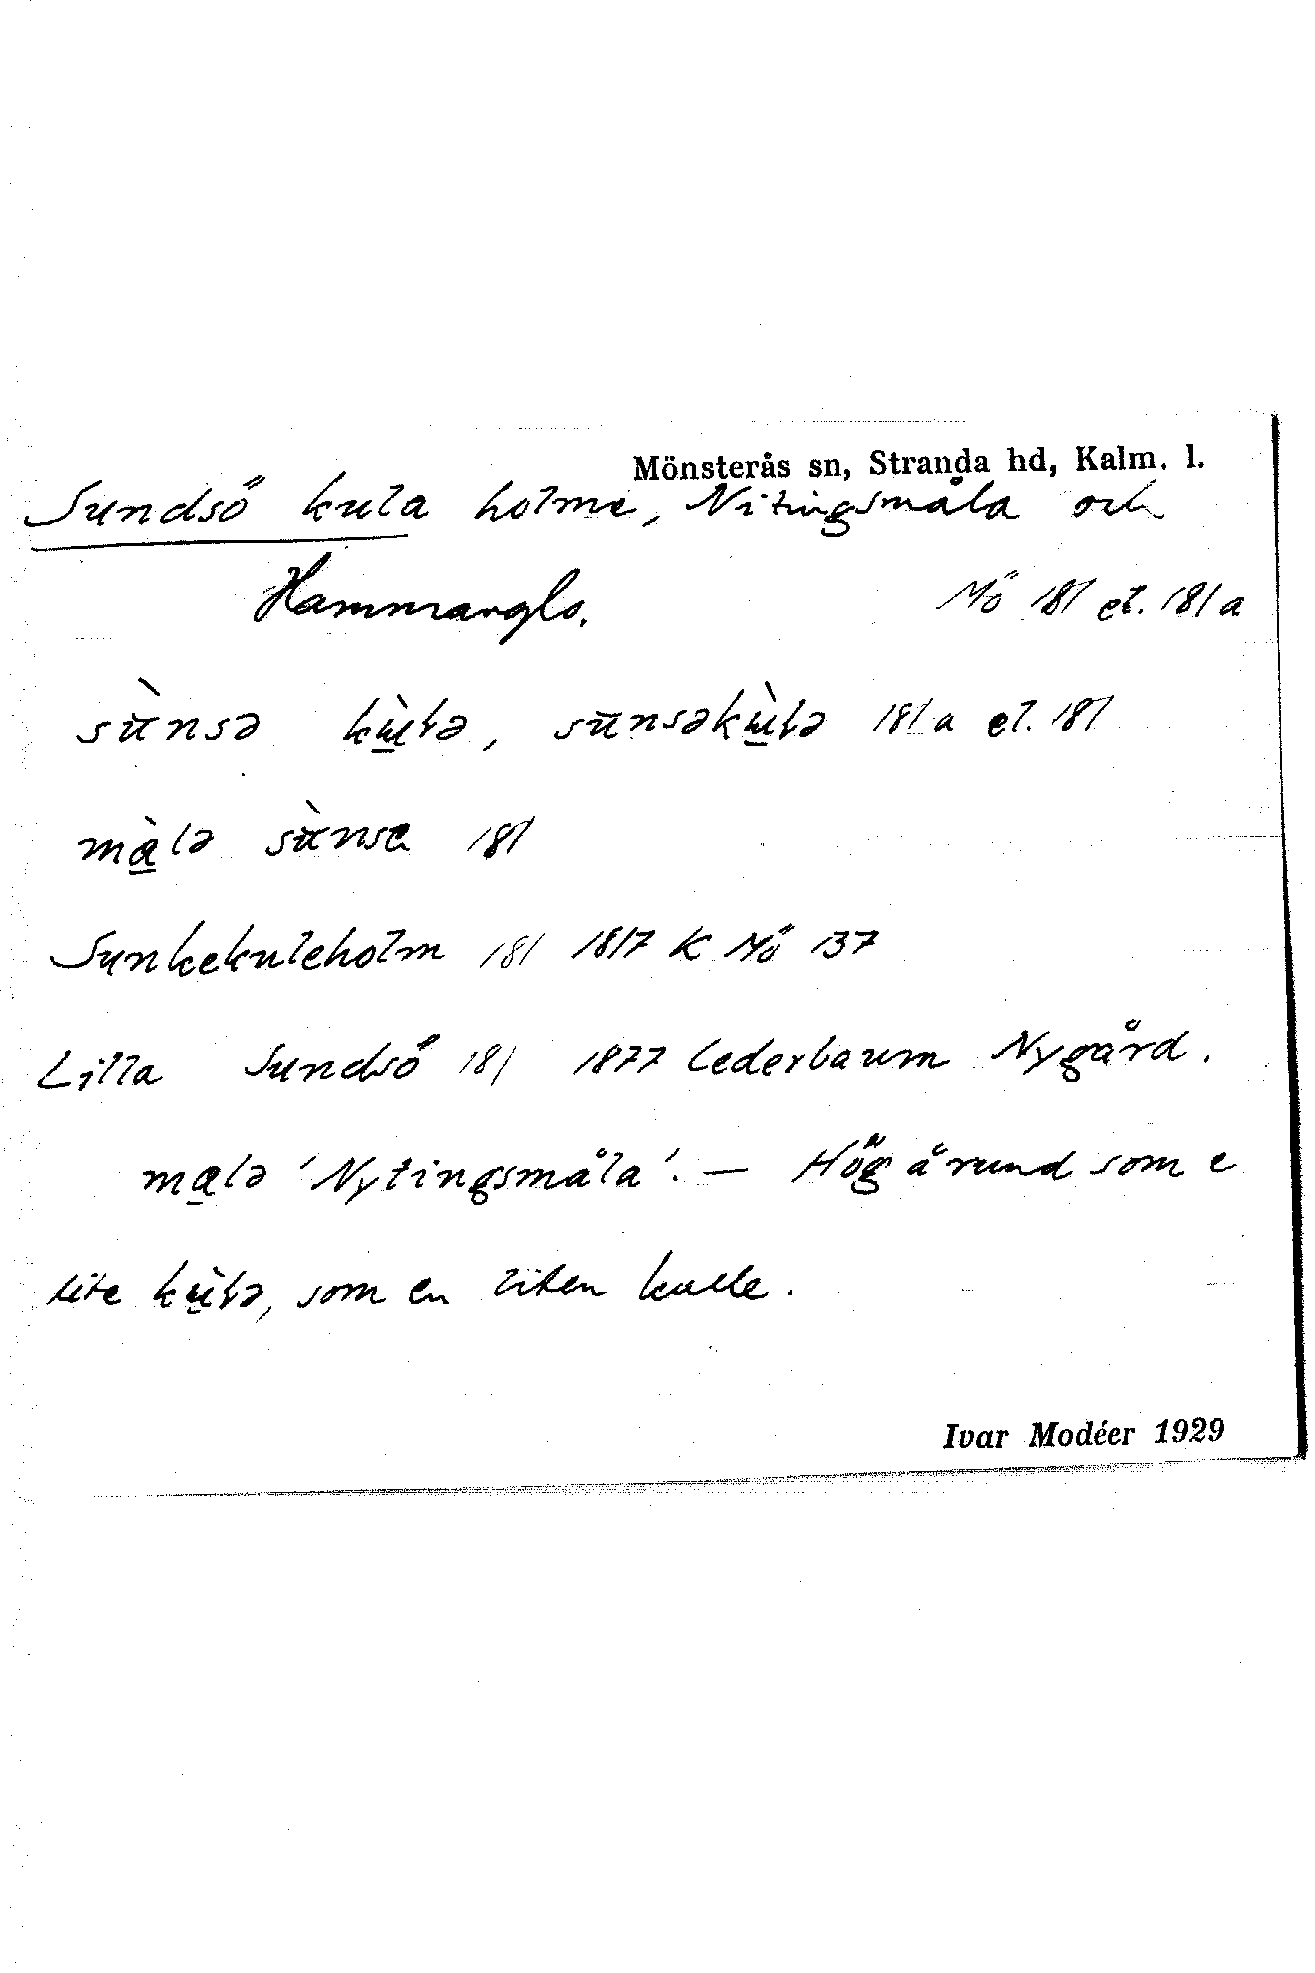 Mönsterås sn, Stranda hd, Kalm. l.
Sundsö kula holme, Nitingsmåla och
Hammarglo.
Mö 181 el. 181a
sùnsə kùlə, sunsəkùlə 181a el. 181
màlə sùnsa 181
Sunkekuleholm 181 1817 K Mö 137
Lilla Sundsö 181 1877 Cederbaum Nygård.
malə 'Nytingsmåla'. — Hög å rund som e
lite kùlə, som en liten kulle.
Ivar Modéer 1929